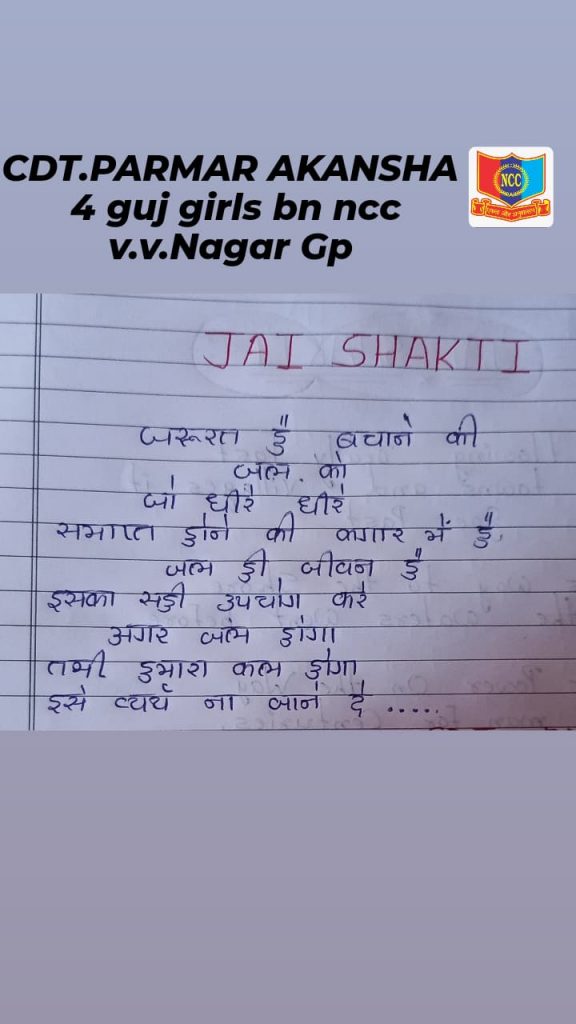 CDT.PARMAR AKANSHA
4 guj girls bn ncc
v.v.Nagar Gp
NCC
एकता और अनुशासन
JAI SHAKTI
जरूरत है बचाने की
जल को
जो धीरे धीरे
समाप्त होने की कगार में है,
जल ही जीवन है
इसका सही उपयोग करे
अगर जल होगा
तभी हमारा कल होगा
इसे व्यर्थ ना जाने दे .....